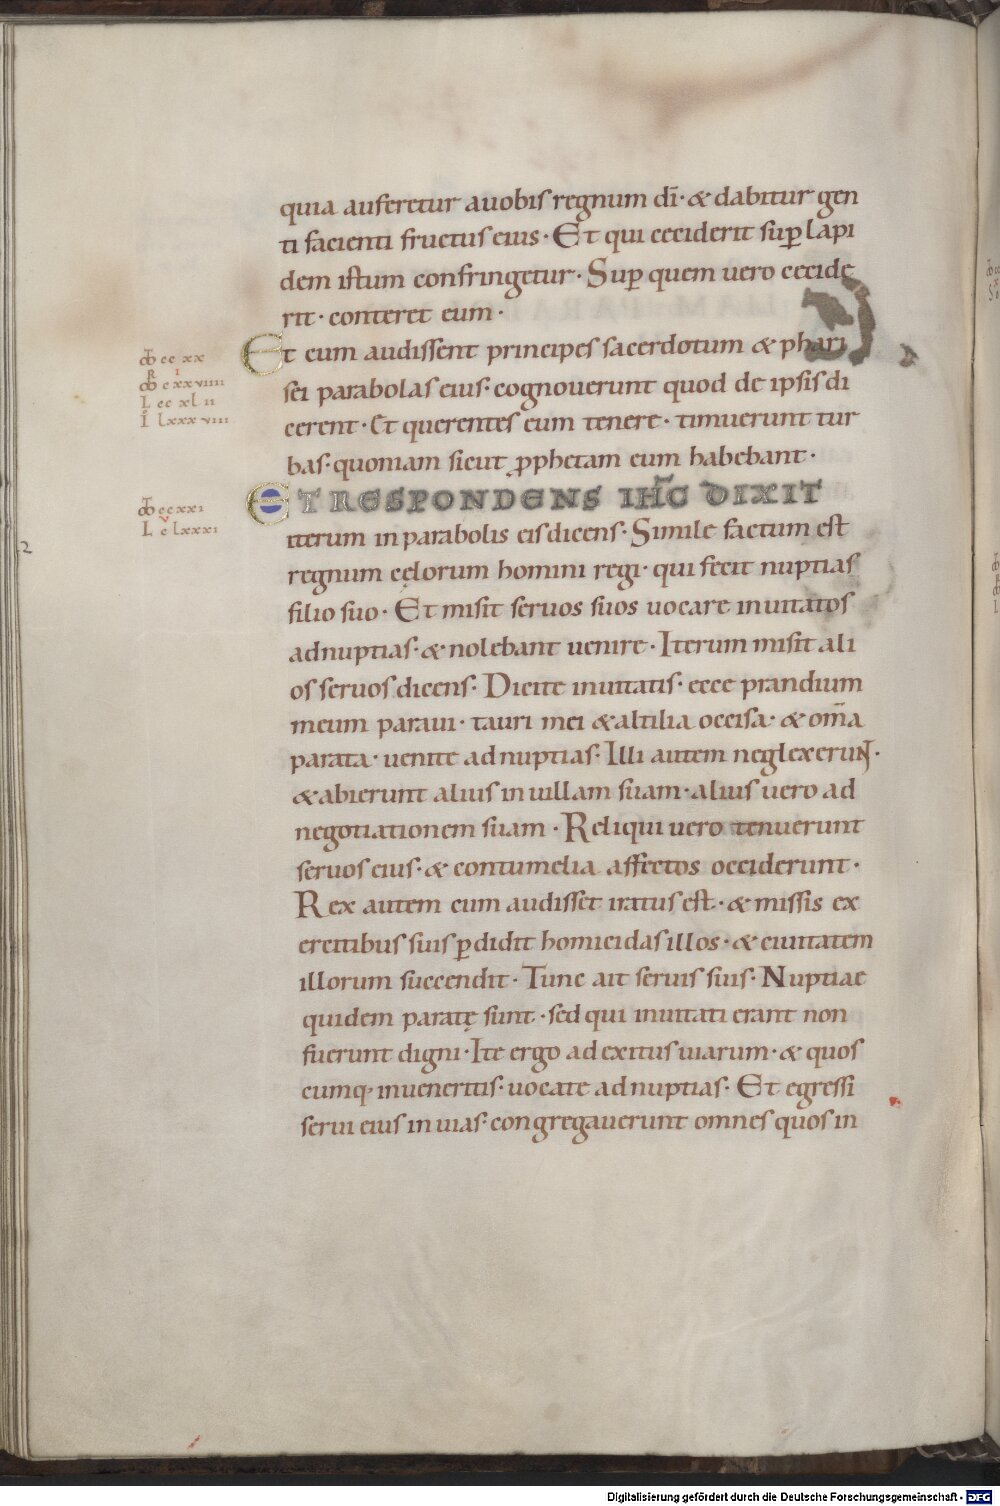 quia auferetur auobis regnum dī· & dabitur gen
ti facienti fructus eius· Et qui ceciderit sup̱ lapi
dem istum confringetur· Sup̱ quem uero cecide
rit· conteret eum·
Et cum audissent principes sacerdotum & phari
sei parabolas eius· cognouerunt quod de ipsis di
cerent· Et querentes eum tenere· timuerunt tur
bas· quoniam sicut ꝓphetam eum habebant·
ET RESPONDENS IHC̄ DIXIT
iterum in parabolis eis dicens· Simile factum est
regnum cęlorum homini regi· qui fecit nuptias
filio suo· Et misit seruos suos uocare inuitatos
ad nuptias· & nolebant uenire· Iterum misit ali
os seruos dicens· Dicite inuitatis· ecce prandium
meum paraui· tauri mei & altilia occisa· & om̄a
parata· uenite ad nuptias· Illi autem neglexerunt·
& abierunt alius in uillam suam· alius uero ad
negotiationem suam· Reliqui uero tenuerunt
seruos eius· & contumelia affectos occiderunt·
Rex autem cum audisset iratus est· & missis ex
ercitibus suis ꝑdidit homicidas illos· & ciuitatem
illorum succendit· Tunc ait seruis suis· Nuptiae
quidem paratę sunt· sed qui inuitati erant non
fuerunt digni· Ite ergo ad exitus uiarum· & quos
cumq· inueneritis· uocate ad nuptias· Et egressi
serui eius in uias· congregauerunt omnes quos in
cc xx
R i
c xx viiii
L cc xl ii
I lxxx viiii
ccxxi
v
L clxxxi
2
Digitalisierung gefördert durch die Deutsche Forschungsgemeinschaft - DFG